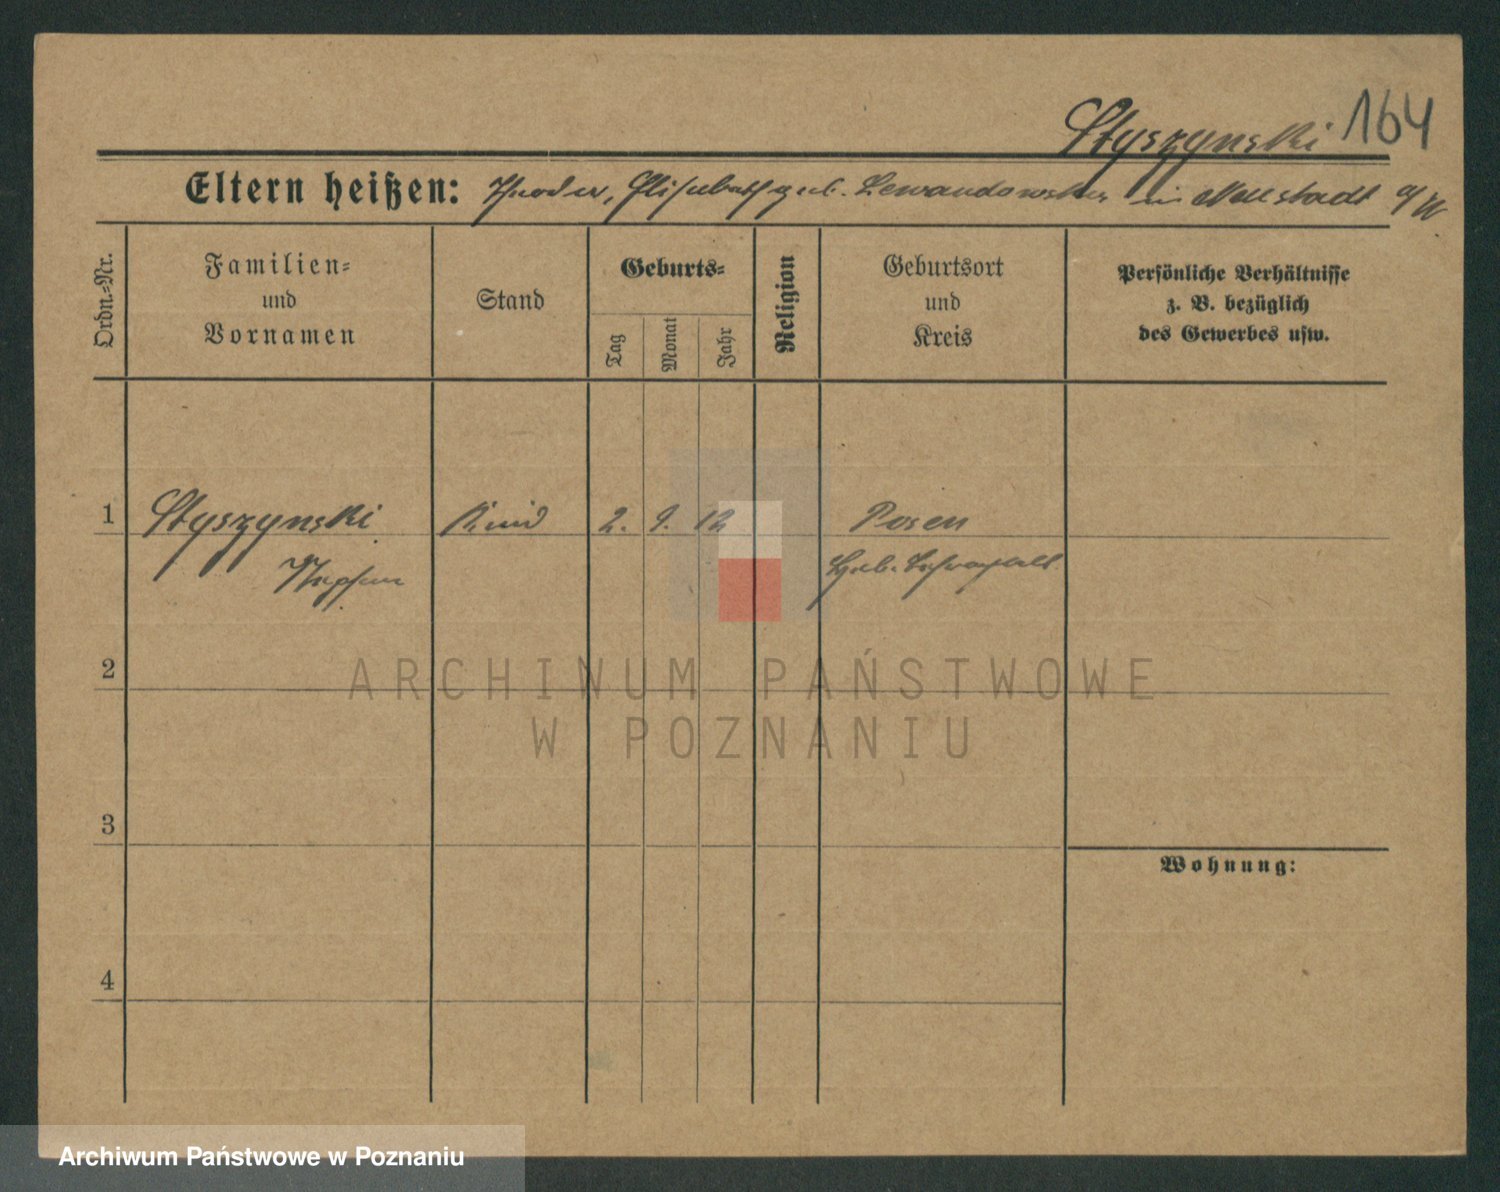 Styszynski 164
Eltern heißen: Theodor, Elisabeth geb. Lewandowska in Neustadt a/W.
Ordn.-Nr.
Familien-
und
Vornamen
Stand
Geburts-
Tag
Monat
Jahr
Religion
Geburtsort
und
Kreis
Persönliche Verhältnisse
z. B. bezüglich
des Gewerbes usw.
1 Styszynski Kind 2. 9. 12 Posen
Stephan Heb. Lehranstalt
2
ARCHIWUM PAŃSTWOWE
W POZNANIU
3
Wohnung:
4
Archiwum Państwowe w Poznaniu